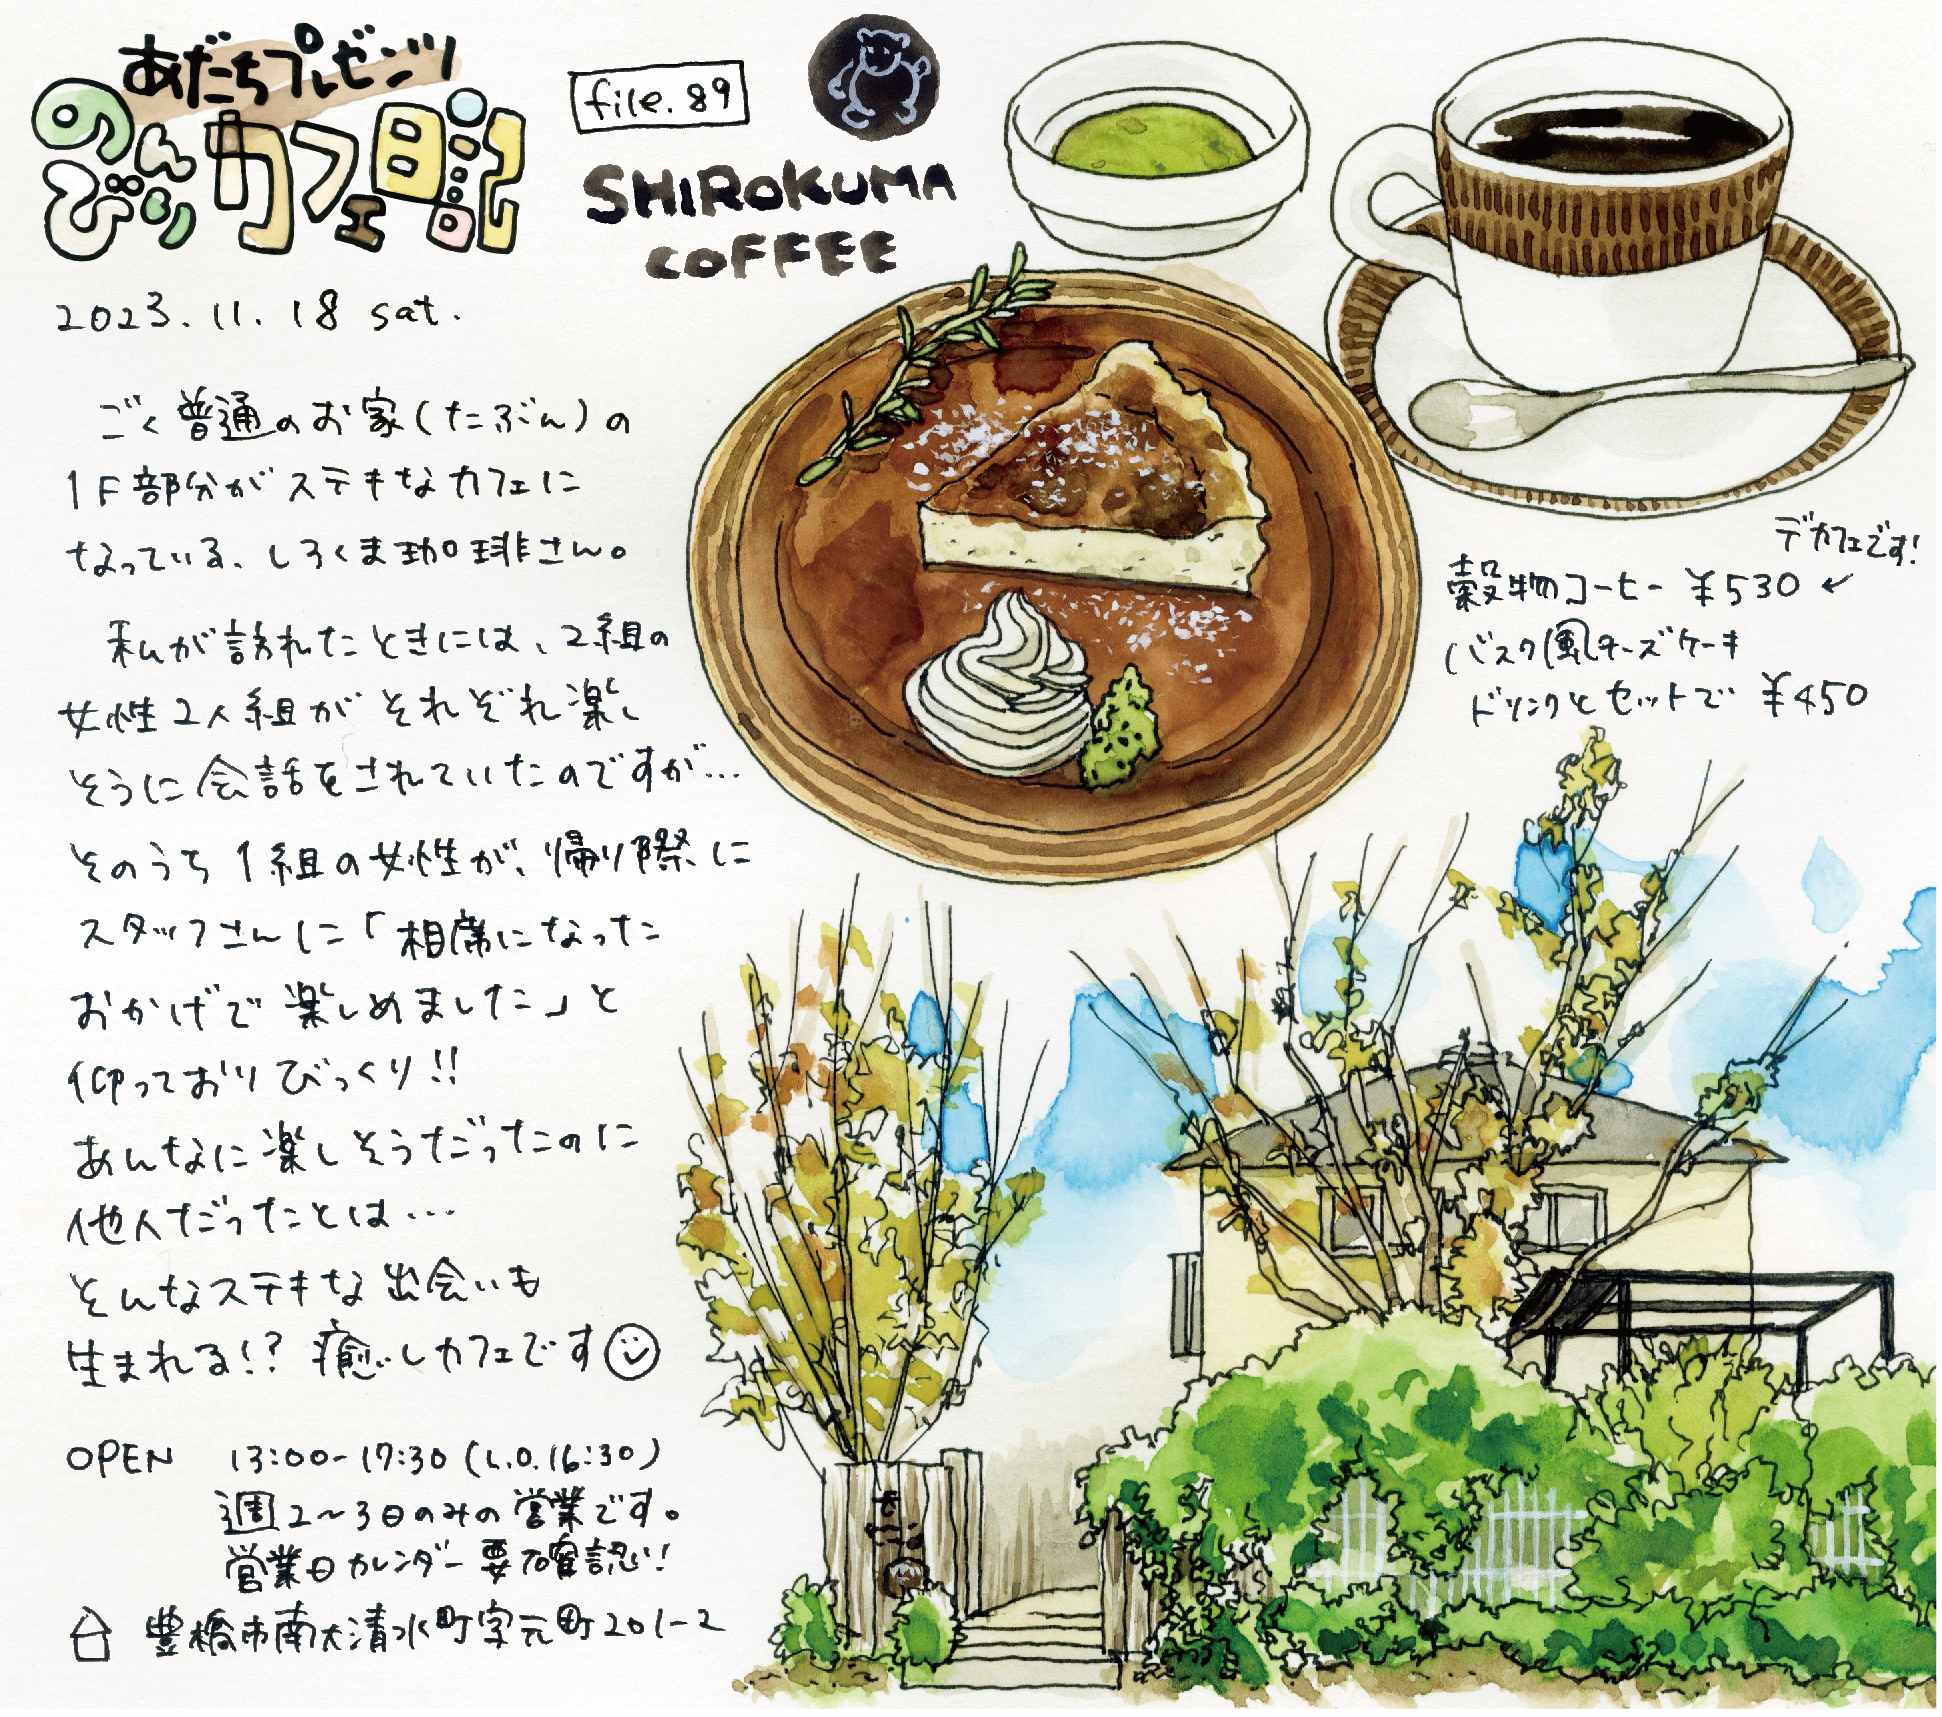 あだちプレゼンツ
のんびりカフェ日記
file.89
SHIROKUMA
COFFEE
2023.11.18 sat.
ごく普通のお家(たぶん)の
1F部分がステキなカフェに
なっている、しろくま珈琲さん。
私が訪れたときには、2組の
女性2人組がそれぞれ楽し
そうに会話をされていたのですが…
そのうち1組の女性が、帰り際に
スタッフさんに「相席になった
おかげで楽しめました」と
仰っておりびっくり!!
あんなに楽しそうだったのに
他人だったとは…
そんなステキな出会いも
生まれる!?癒しカフェです
OPEN 13:00-17:30(L.O.16:30)
週2〜3日のみの営業です。
営業日カレンダー要確認!
豊橋市南大清水町字元町201-2
デカフェです!
穀物コーヒー ¥530
バスク風チーズケーキ
ドリンクとセットで ¥450